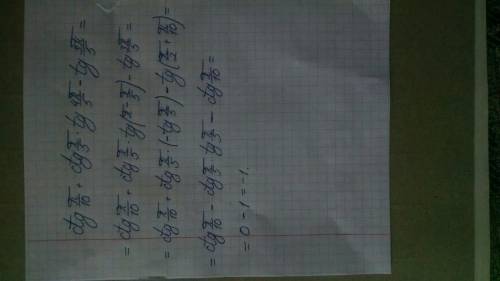 ctg π/10 + ctg π/3 · tg 2π/3 - tg 3π/5 =
= ctg π/10 + ctg π/3 · tg(π - π/3) - tg 3π/5 =
= ctg π/10 + ctg π/3 · (-tg π/3) - tg(π/2 + π/10) =
= ctg π/10 - ctg π/3 · tg π/3 - ctg π/10 =
= 0 - 1 = -1.